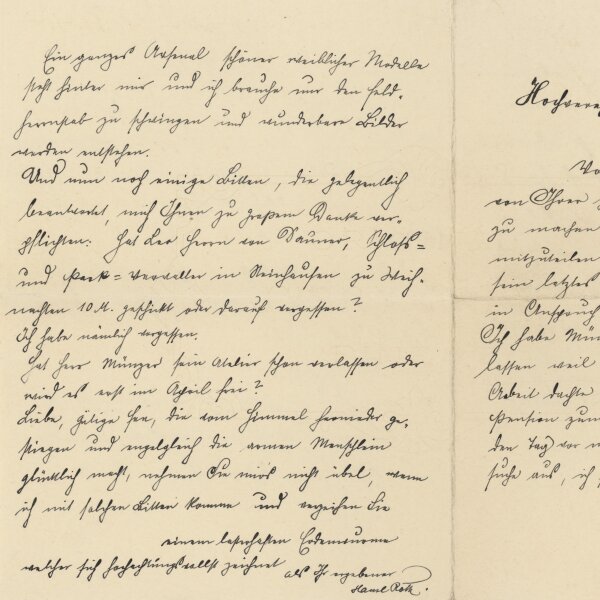 Ein ganzes Arsenal schöner weiblicher Modelle
steht hinter mir und ich brauche nur den Feld-
herrnstab zu schwingen und wunderbare Bilder
werden entstehen.
Und nun noch einige Bitten, die gelegentlich
beantwortet, mich Ihnen zu großem Danke ver-
pflichten: Hat Leo Herrn von Dauner, Schloß=
und Park=verwalter in Steinhausen zu Weih-
nachten 10 M. geschickt oder darauf vergessen?
Ich habe nämlich vergessen.
Hat Herr Münzer sein Atelier schon verlassen oder
wird es erst im April frei?
Liebe, gütige Fee, die vom Himmel hernieder ge-
stiegen und engelgleich die armen Menschlein
glücklich macht, nehmen Sie mirs nicht übel, wenn
ich mit solchen Bitten komme und verzeihen Sie
einem Erdenwurme
welcher sich hochachtungsvollst zeichnet
als Ihr ergebener
Roth.
Hochvere
Vo
von Ihrer
zu machen
mitzuteilen
sein letztes
in Anspruch
Ich habe Mün
lassen weil
Arbeit dachte
Pension zum
den Tag vor
suche aus, ich